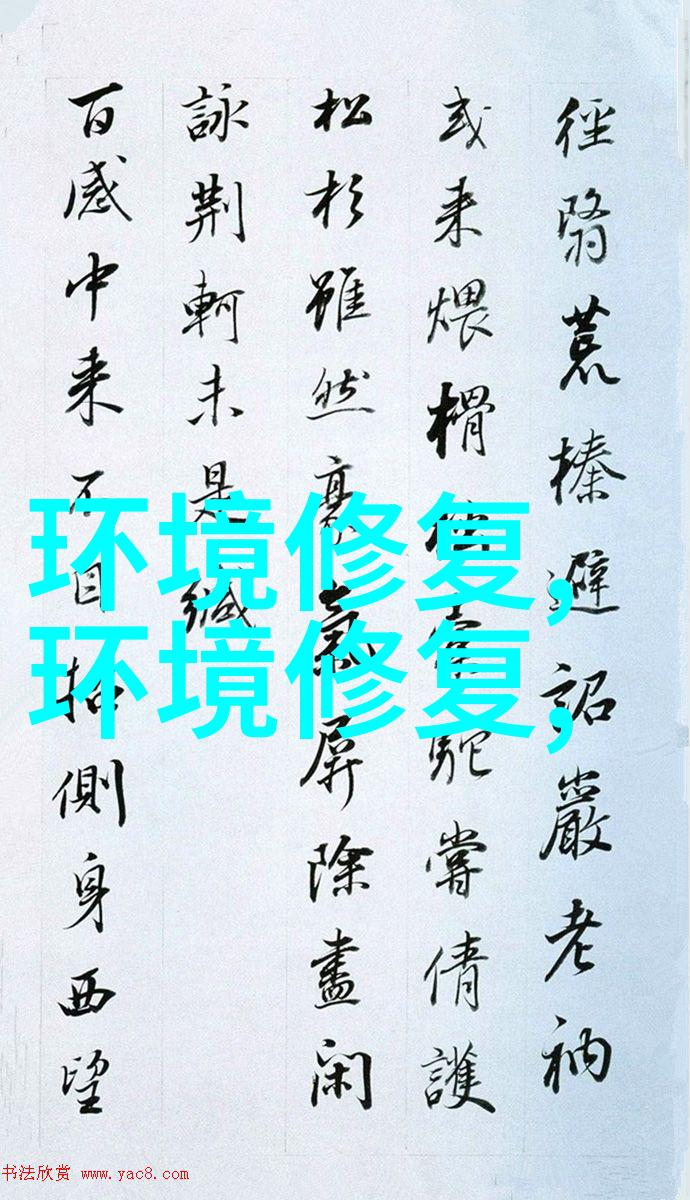 徑翳荒榛避詔嚴老衲
或来煨榾駝嘗倩護
松杉雖然豪氣屏除盡閑
詠荆軻未是緘
百感中来不自側身西望
环境修复,
环境修复,
书法欣赏 www.yac8.com